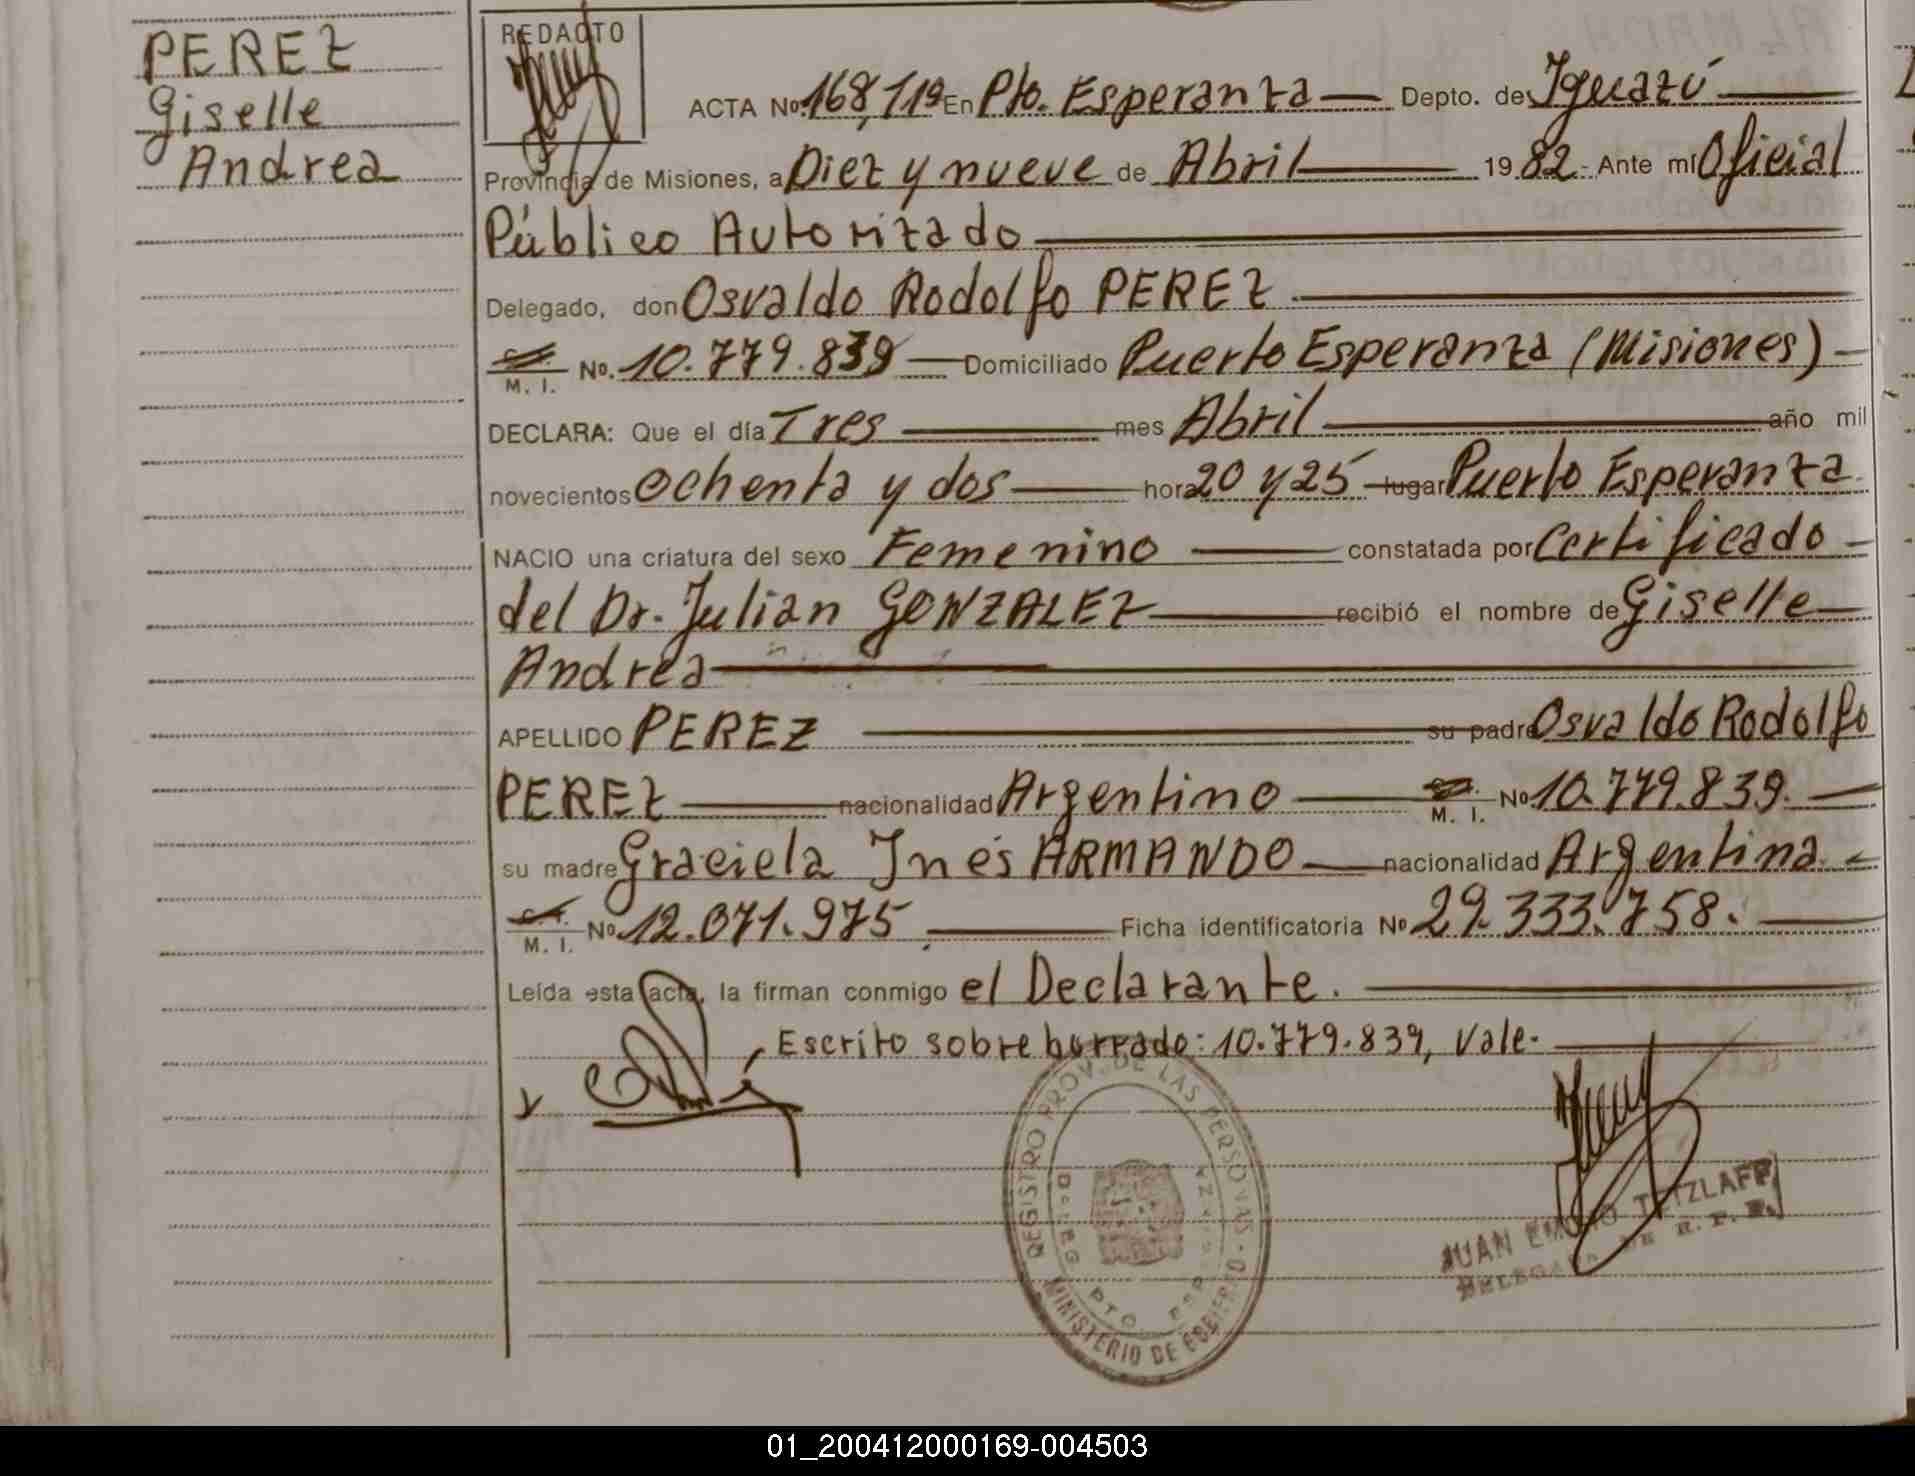 PEREZ
Giselle
Andrea
REDACTO
ACTA Nº 168, Tº 1º En Pto. Esperanza Depto. de Iguazú
Provincia de Misiones, a Diez y nueve de Abril 1982.- Ante mí Oficial
Público Autorizado
Delegado, don Osvaldo Rodolfo PEREZ
M. I. Nº. 10.779.839 Domiciliado Puerto Esperanza (Misiones)
DECLARA: Que el día Tres mes Abril año mil
novecientos ochenta y dos hora 20 y 25 lugar Puerto Esperanza
NACIO una criatura del sexo Femenino constatada por Certificado
del Dr. Julian GONZALEZ recibió el nombre de Giselle
Andrea
APELLIDO PEREZ su padre Osvaldo Rodolfo
PEREZ nacionalidad Argentino M. I. Nº 10.779.839.
su madre Graciela Inés ARMANDO nacionalidad Argentina
M. I. Nº 12.071.975 Ficha identificatoria Nº 29.333.758.
Leída esta acta, la firman conmigo el Declarante.
Escrito sobre borrado: 10.779.839, Vale.
REGISTRO PROV. DE LAS PERSONAS
MINISTERIO DE GOBIERNO
DELEG. PTO. ESPERANZA
JUAN EMILIO TETZLAFF
DELEGADO DE R. P. P.
01_200412000169-004503